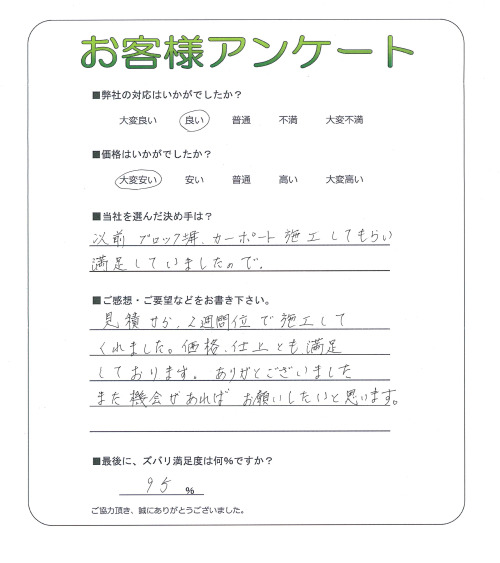 お客様アンケート
■弊社の対応はいかがでしたか？
大変良い 良い 普通 不満 大変不満
■価格はいかがでしたか？
大変安い 安い 普通 高い 大変高い
■当社を選んだ決め手は？
以前 ブロック塀、カーポート 施工してもらい
満足していましたので。
■ご感想・ご要望などをお書き下さい。
見積から、2週間位で施工して
くれました。価格、仕上とも満足
しております。ありがとございました
また機会があれば お願いしたいと思います。
■最後に、ズバリ満足度は何％ですか？
95 ％
ご協力頂き、誠にありがとうございました。